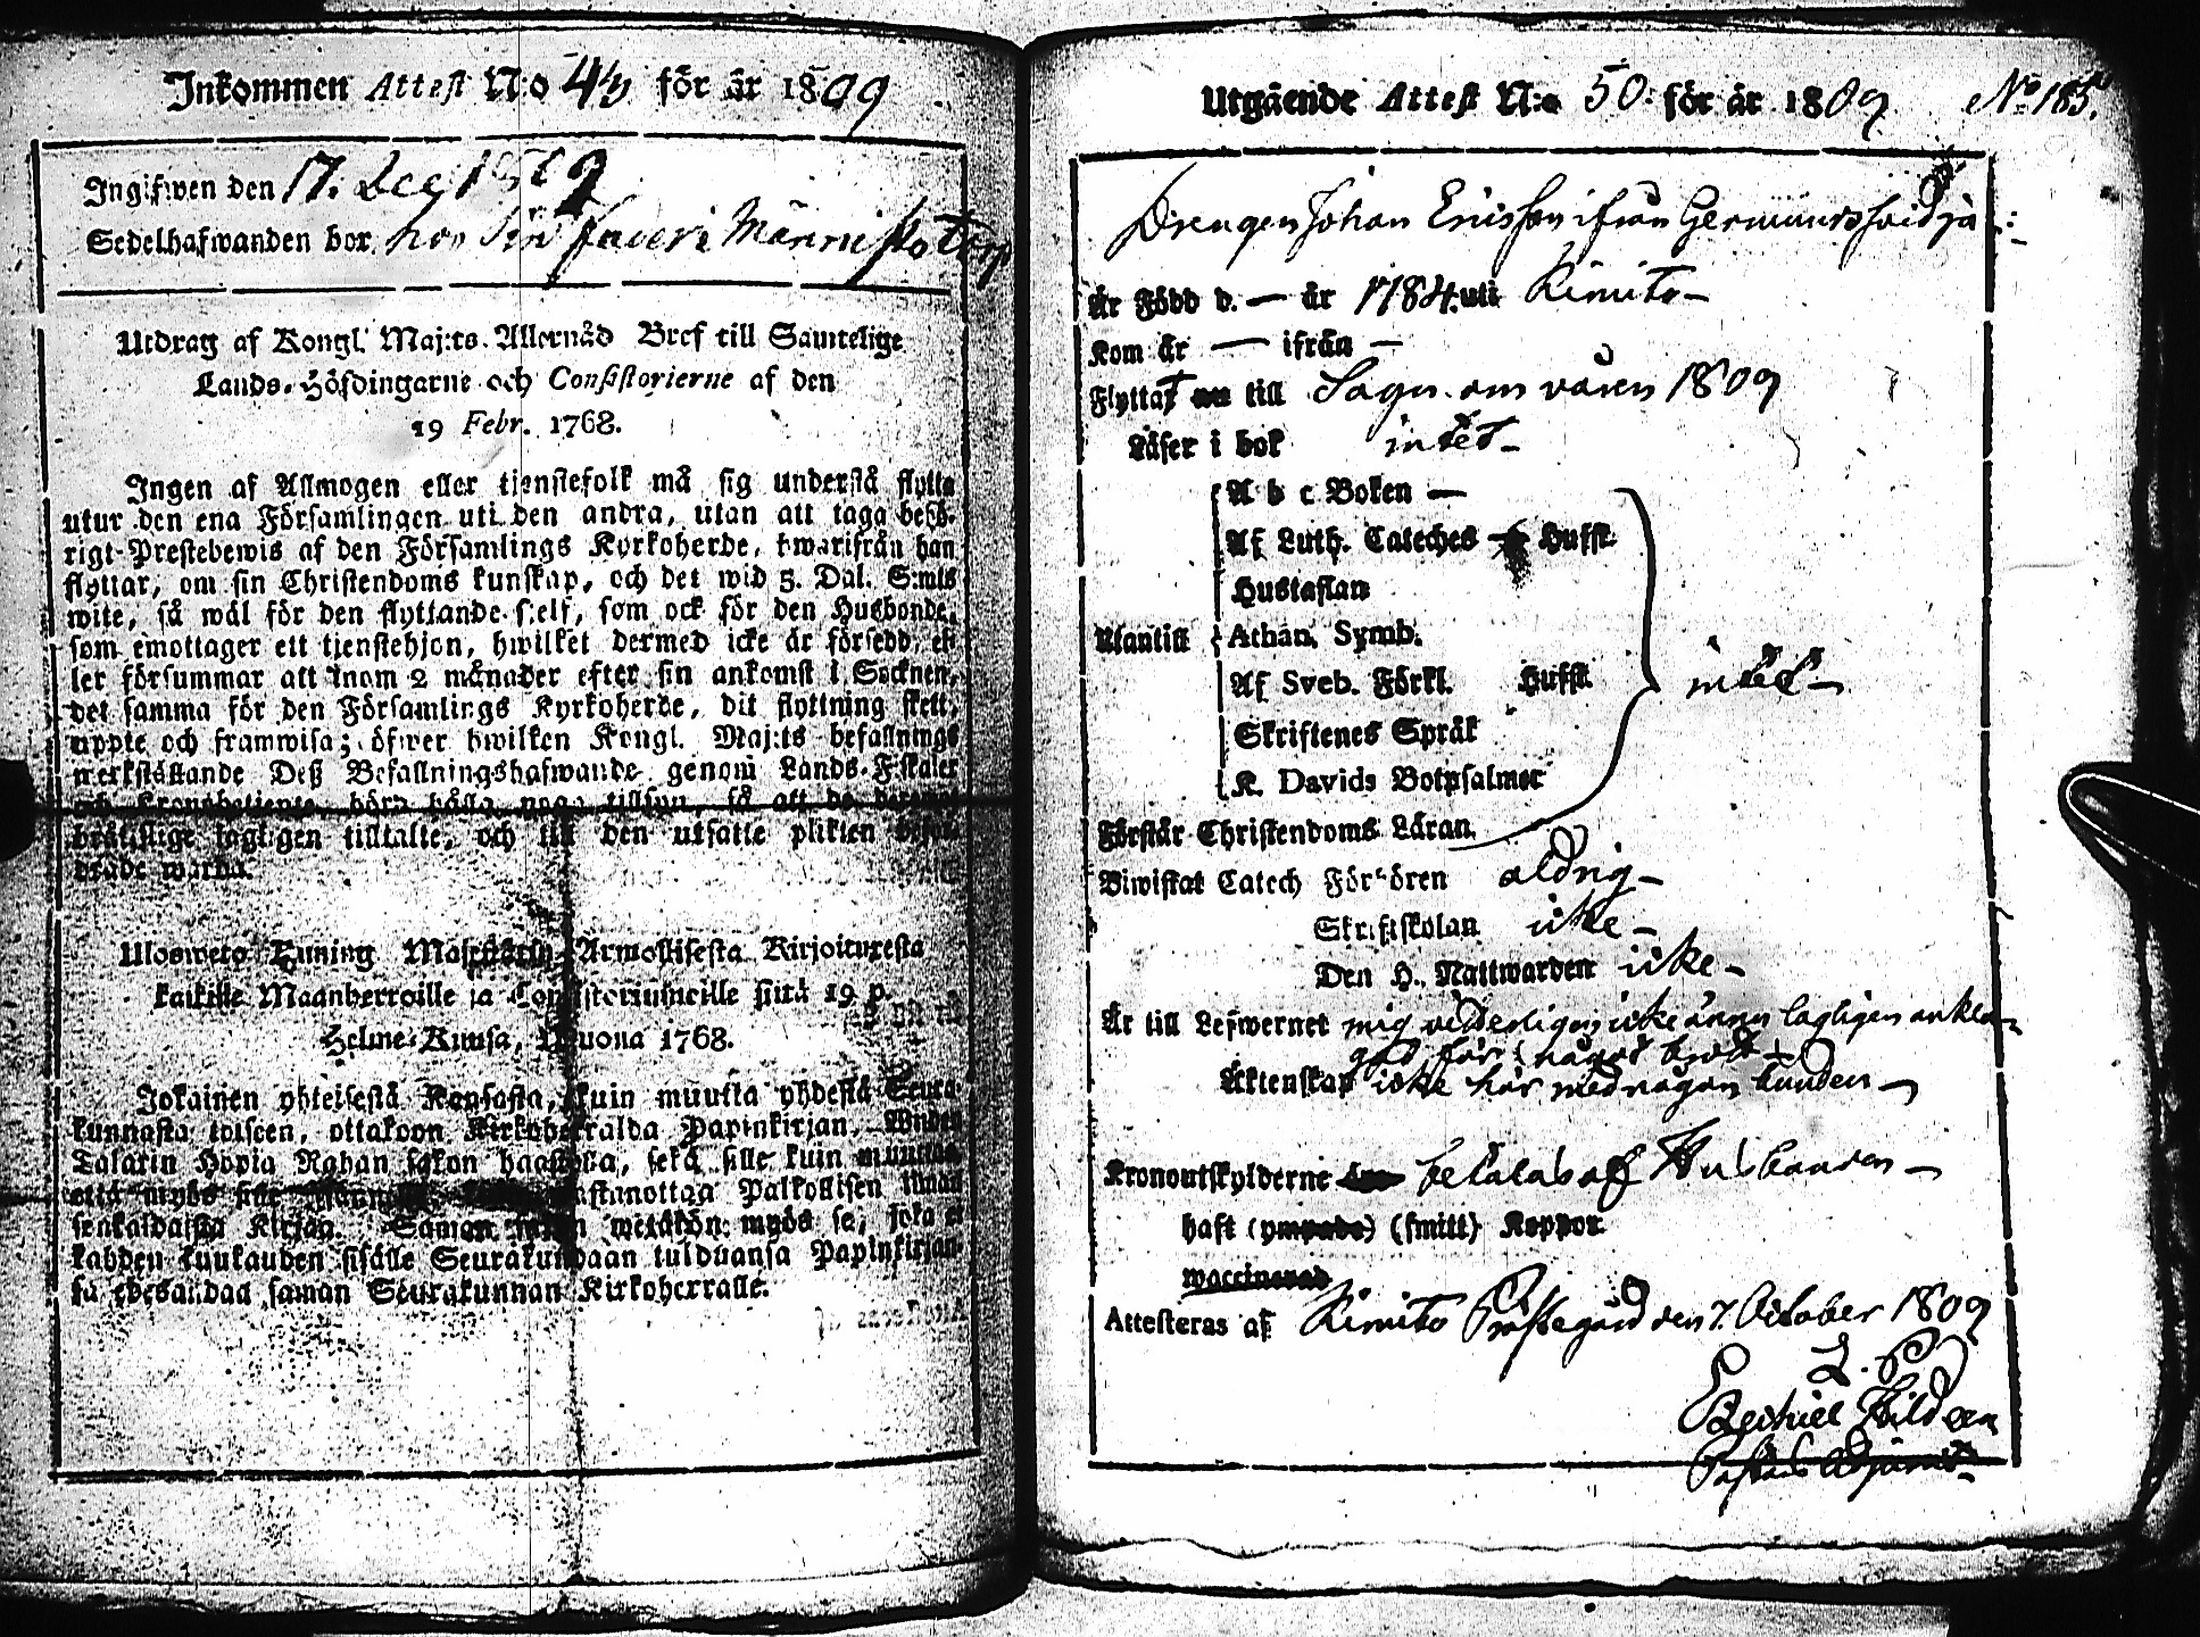 Inkommen Attest N:o för år 1809
Ingifwen den 17. Dec 1809
Sedelhafwanden bor. hos Sin fader i Männisto Torp
Utdrag af Kongl. Maj:ts Allernåd Bref till Samtelige
Lands-Höfdingarne och Consistorierne af den
19 Febr. 1768.
Ingen af Allmogen eller tjenstefolk må sig understå flytta
utur den ena Församlingen uti den andra, utan att taga behö-
rigt Prestebewis af den Församlings Kyrkoherde, hwarifrån han
flyttar, om sin Christendoms kunskap, och det wid 5. Dal. S:mts
wite, så wäl för den flyttande sielf, som ock för den Husbonde,
som emottager ett tjenstehjon, hwilket dermed icke är försedd, el-
ler försummar att inom 2 månader efter sin ankomst i Socknen,
det samma för den Församlings Kyrkoherde, dit flyttning skett,
uppte och framwisa; öfwer hwilken Kongl. Maj:ts befallnings
werkställande Deß Befallningshafwande genom Lands-Fiskaler
och Kronobetjente, böra hålla noga tillsyn, så att de
brätslige lagligen tilltalte, och till den utsatte plikten
warda.
Ulosweto Kuning Majestätin Armollisesta Kirjoituxesta
kaikille Maanherroille ja Consistoriumeille siitä 19 p.
Helme-Kuusa, Wuona 1768.
Jokainen yhteisestä Kansasta, kuin muutta yhdestä Seura-
kunnasta toiseen, ottakoon Kirkoherralda Papinkirjan, Wiiden
Talarin Hopia Rahan sakon haastolla, sekä sille kuin muuttaa
että myös sille wastanottaa Palkollisen ilman
senkaldaista Kirjaa. Saman wetäkön myös se, joka ei
kahden kuukauden sisälle Seurakundaan tulduansa Papinkirjan-
sa edesandaa saman Seurakunnan Kirkoherralle.
Utgående Attest N:o 50. för år 1809 No 185.
Drengen Johan Ericsson ifrån Germundssvidja
Är Född d. — år 1784. uti Kimito —
Kom år — ifrån —
Flyttat till Sagu om våren 1809
Läser i bok intet —
A b c Boken —
Af Luth. Cateches — Hufst.
Hustaflan
Utantill Athan. Symb.
Af Sveb. Förkl. Hufst. intet —
Skriftenes Språk
K. Davids Botpsalmer
Förstår Christendoms Läran.
Biwistat Catech Förhören aldrig —
Skriftskolan icke —
Den H. Nattwarden icke —
Är till Lefwernet mig vetterligen icke ännu lagligen ankla-
gad för något brott —
Äktenskap icke här med någon bunden —
Kronoutskylderne betalas af Husbonden —
haft (ympade) (smitt) Koppor.
waccinerad
Attesteras af Kimito Prästegård den 7. October 1809
L. P
Ezechiel Hildeen
Pastors Adjunct